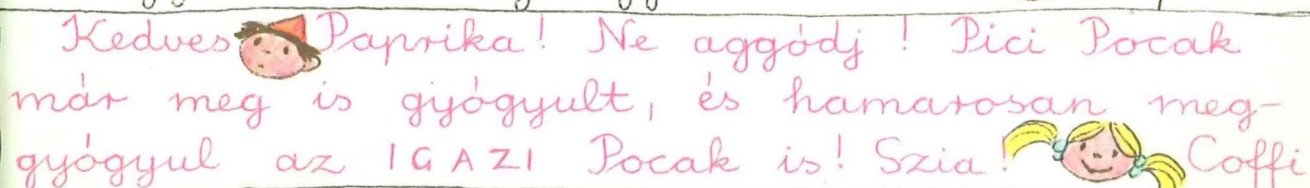 Kedves Paprika! Ne aggódj! Pici Pocak
már meg is gyógyult, és hamarosan meg-
gyógyul az IGAZI Pocak is! Szia! Coffi